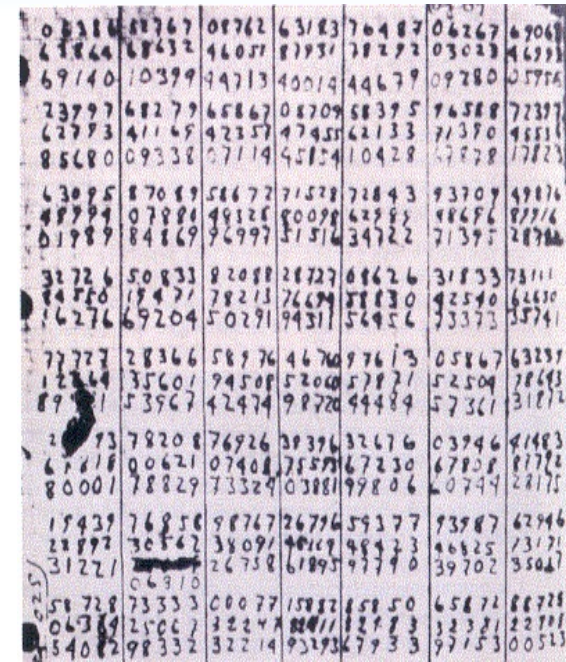 52767 08762 63183 76487 06267 69069
68632 46051 87931 78292 03023
69140 10399 44713 40014 44679 09280
23997 68279 65867 08709 58395 96588
62793 41169 42357 47455 62133 71390
85680 09338 07114 45154 10428 67878
63095 87089 71528 72843 93709 49876
48994 07880 80098 62989 88696 89916
01989 84869 96997 51516 34722 71395
32726 50833 82088 28727 08626 31833 73111
84550 19471 78213 76694 58830 42540 62630
16276 69204 50291 94311 56456 73373 35741
77727 28366 58976 46760 97613 05867 63239
35601 94508 52060 57871 52504 78643
53967 42474 98720 44484 57361 31872
78208 76926 38396 32676 03946 41483
00621 07408 75595 67230 67808 87792
80001 78829 73324 03881 99806 60744 28175
19439 76856 98767 26796 59377 93987 62946
22892 30562 38091 48423 46825 73171
31221 26758 61895 97790 39702 35017
58728 73333 00077 15882 85850 65872 88728
06364 32247 82183 32381
54082 32214 93293 67933 97153 00523